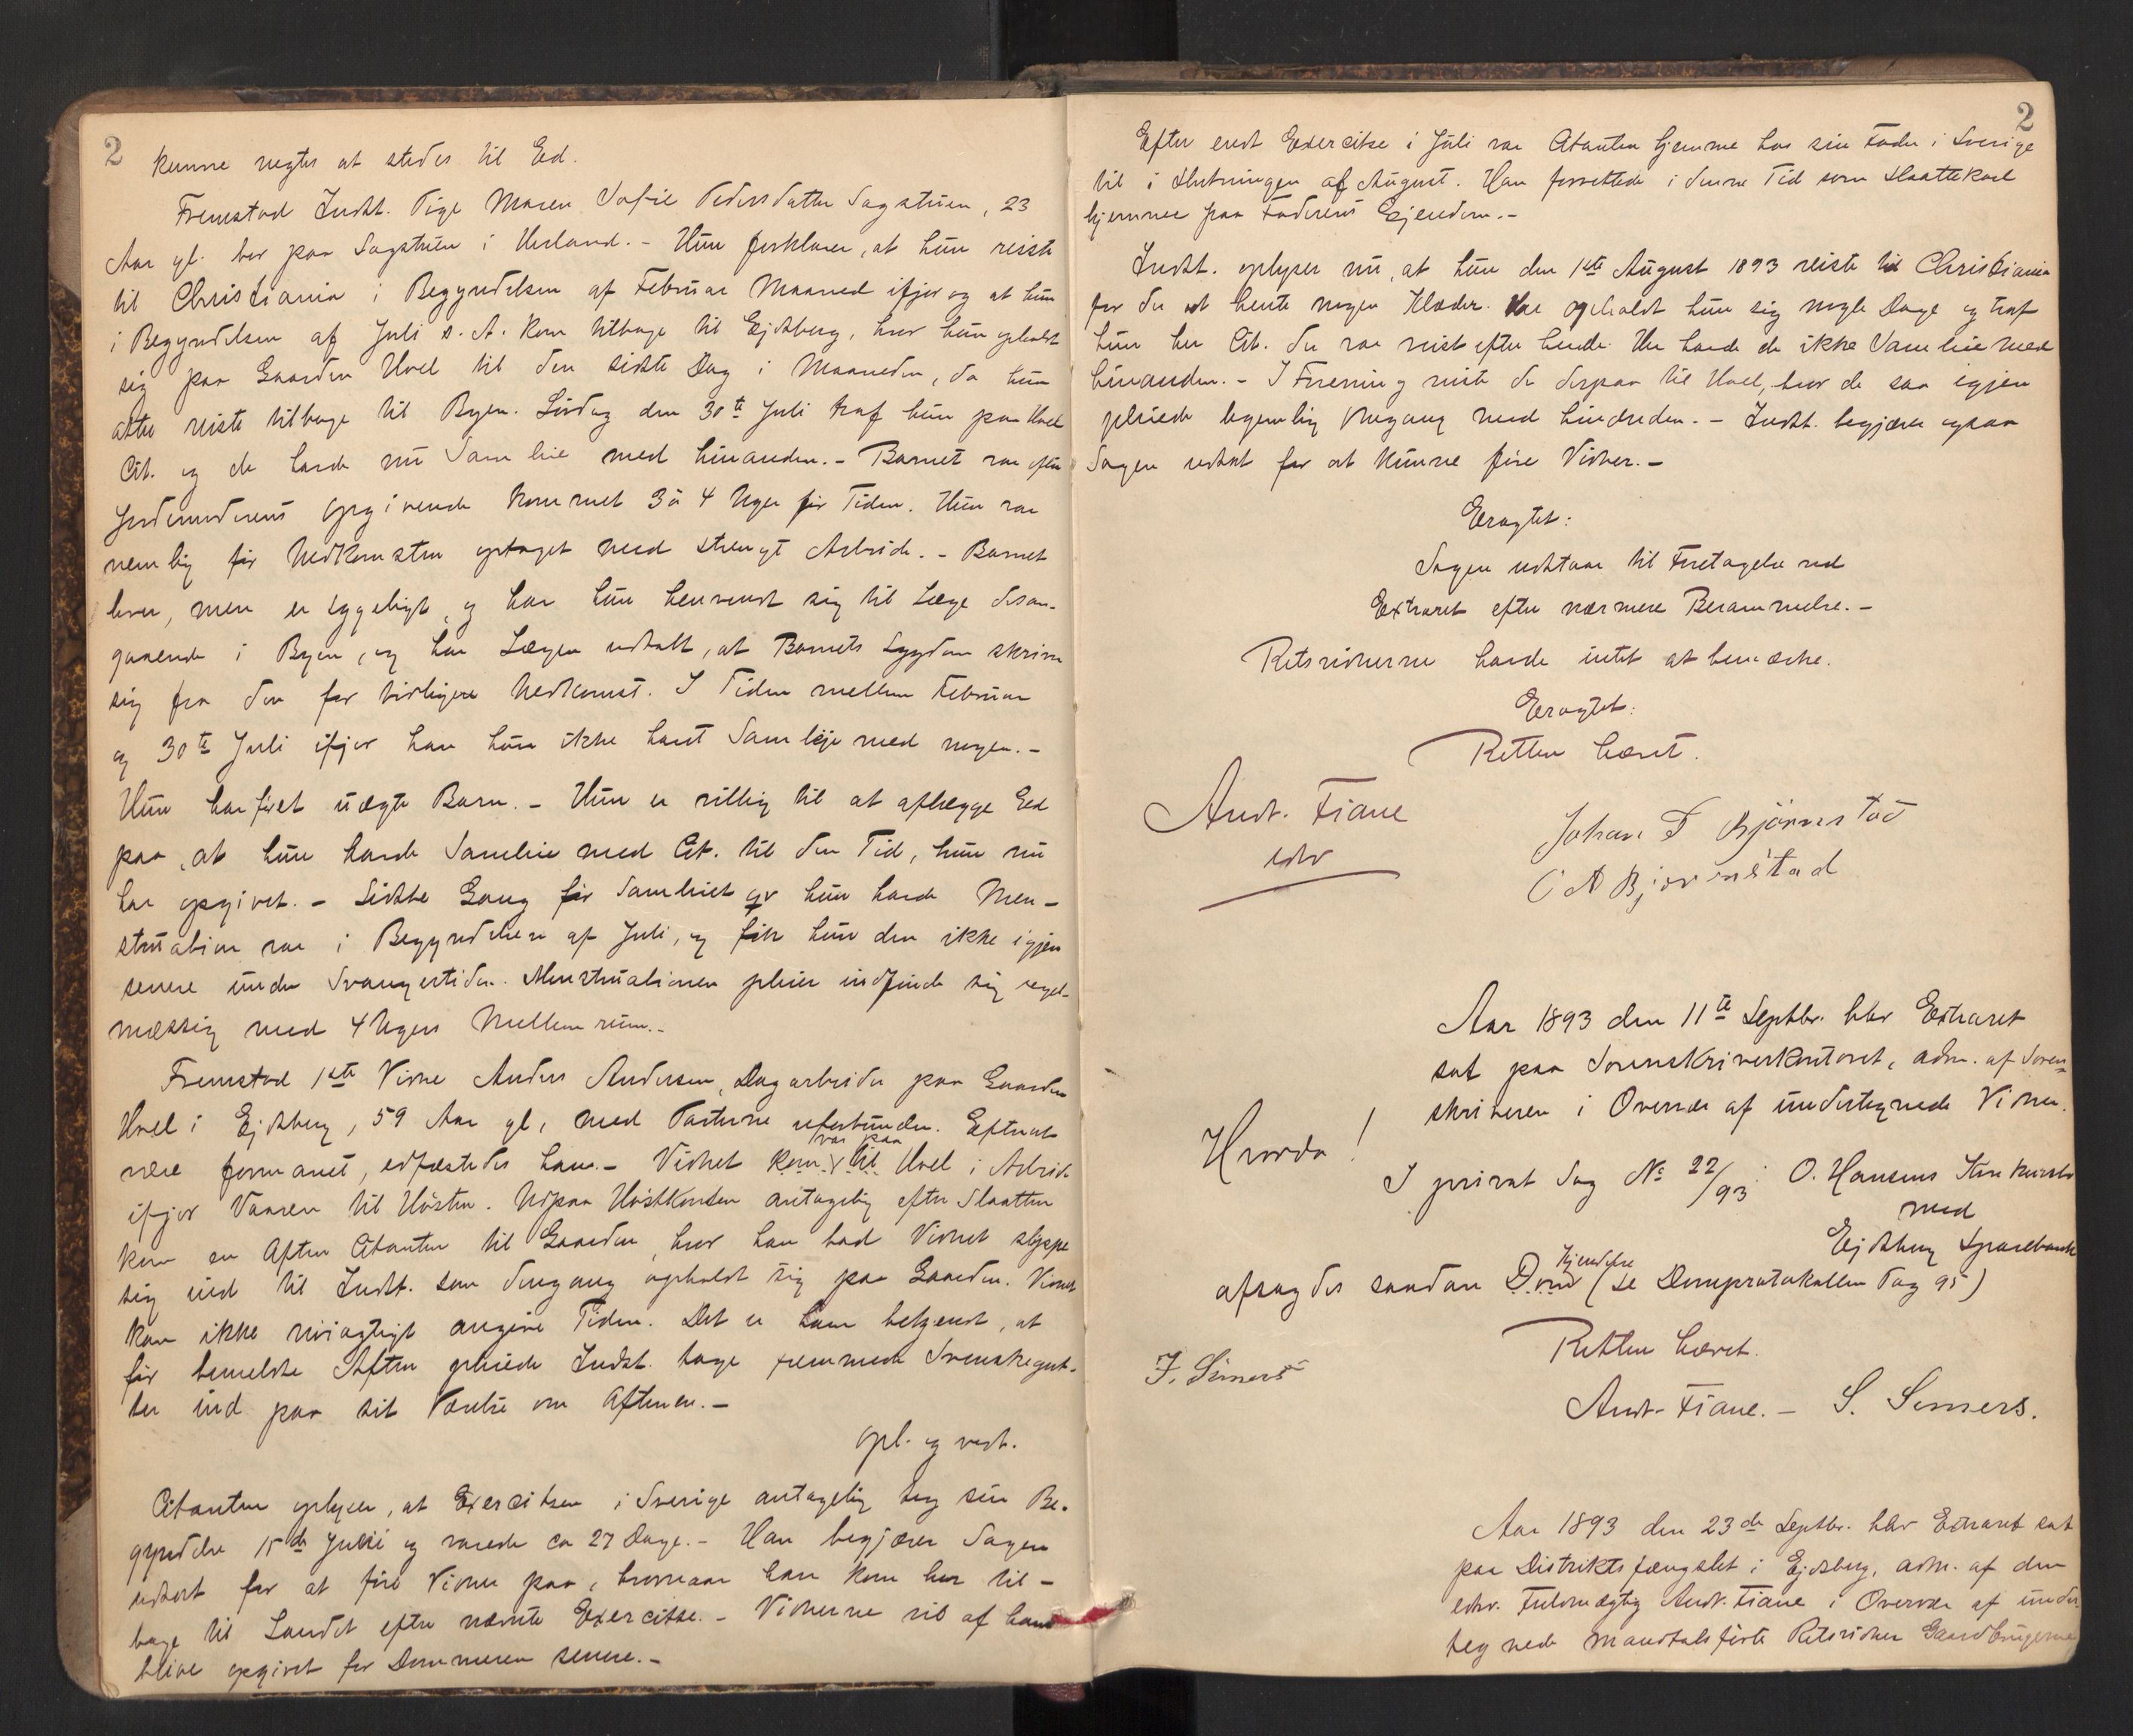 2
kunne negtes at stedes til Ed.
Fremstod Indst. Pige Maren Sofie Pedersdatter Sagstuen, 23
Aar gl. bor paa Sagstuen i Herland. - Hun forklarer, at hun reiste
til Christiania i Begyndelsen af Februar Maaned ifjor og at hun
i Begyndelsen af Juli s. A. kom tilbage til Ejdsberg, hvor hun opholdt
sig paa Gaarden Hvel til den sidste Dag i Maaneden, da hun
atter reiste tilbage til Byen. Lördag den 30te Juli traf hun paa Hvel
Cit. og de havde nu Samleie med hinanden. - Barnet var efter
Jordemoderens Opgivende kommet 3 à 4 Uger för Tiden. Hun var
nemlig för Nedkomsten optaget med strengt Arbeide. - Barnet
lever, men er sygeligt, og har hun henvendt sig til Læge desan-
gaaende i Byen, og har Lægen udtalt, at Barnets Sygdom skriver
sig fra den for tidligere Nedkomst. I Tiden mellem Februar
og 30te Juli ifjor har hun ikke havt Samleje med nogen. -
Hun har föret uægte Barn. - Hun er villig til at aflægge Ed
paa, at hun havde Samleie med Cit. til den Tid, hun nu
har opgivet. - Sidste Gang för Samleiet hun havde Men-
struation var i Begyndelsen af Juli, og fik hun den ikke igjen
senere under Svangertiden. Menstruationen pleier indfinde sig regel-
mæssig med 4 Ugers Mellemrum. -
Fremstod 1ste Vidne Anders Andersen, Dagarbeider paa Gaarden
Hvel i Ejdsberg, 59 Aar gl, med Parterne uforbunden. Efter at
være formanet, edfæstedes han. - Vidnet kom til var paa Hvel i Arbeide
ifjor Vaaren til Hösten. Udpaa Höstkanten antagelig efter Slaatten
kom en Aften Citanten til Gaarden, hvor han bad Vidnet slippe
sig ind til Indst. som dengang opholdt sig paa Gaarden. Vidnet
kan ikke nöiagtigt angive Tiden. Det er ham bekjendt, at
för bemeldte Aften pleiede Indst. tage fremmede Svenskegut-
ter ind paa sit Værelse om Aftenen. -
Opl. og vedt.
Citanten oplyser, at Exercitsen i Sverige antagelig tog sin Be-
gyndelse 15de Juni og varede ca 27 Dage. - Han begjærer Sagen
udsat for at före Vidner paa, hvornaar han kom her til-
bage til Landet efter nævnte Exercitse. - Vidnerne vil af ham
blive opgivet for Dommeren senere. -
2
Efter endt Exercitse i Juli var Citanten hjemme hos sin Fader i Sverige
til i Slutningen af August. Han forrettede i denne Tid som Slaattekarl
hjemme paa Faderens Ejendom. -
Indst. oplyser nu, at hun den 1ste August 1893 reiste til Christiania
for der at hente nogen Klæder. Her opholdt hun sig nogle Dage og traf
hun her Cit. der var reist efter hende. Her havde de ikke Samleie med
hinanden. - I Forening reiste de derpaa til Hvel, hvor de saa igjen
pleiede legemlig Omgang med hinanden. - Indst. begjærer ogsaa
Sagen udsat for at kunne före Vidner. -
Eragtet:
Sagen udstaar til Foretagelse ved
Extraret efter nærmere Berammelse. -
Retsvidnerne havde intet at bemærke.
Eragtet:
Retten hævet.
Andr. Fiane
edsv
Johan T Björnstad
C A Bjørnstad
Aar 1893 den 11te Septbr. blev Extraret
sat paa Sorenskriverkontoret, adm. af Soren-
skriveren i Overvær af undertegnede Vidner.
Hvorda!
I privat Sag No 22/93: O. Hansens Konkursbo
med
Ejdsberg Sparebank
afsagdes saadan Dom Kjendelse (se Domprotokollen Pag 95)
Retten hævet.
F. Simers
Andr. Fiane. - S. Simers.
Aar 1893 den 23de Septbr. blev Extraret sat
paa Distriktsfængslet i Ejdsberg, adm. af den
edsv. Fuldmægtig Andr. Fiane i Overvær af under-
tegnede mandtalsförte Retsvidner Gaardbrugerne